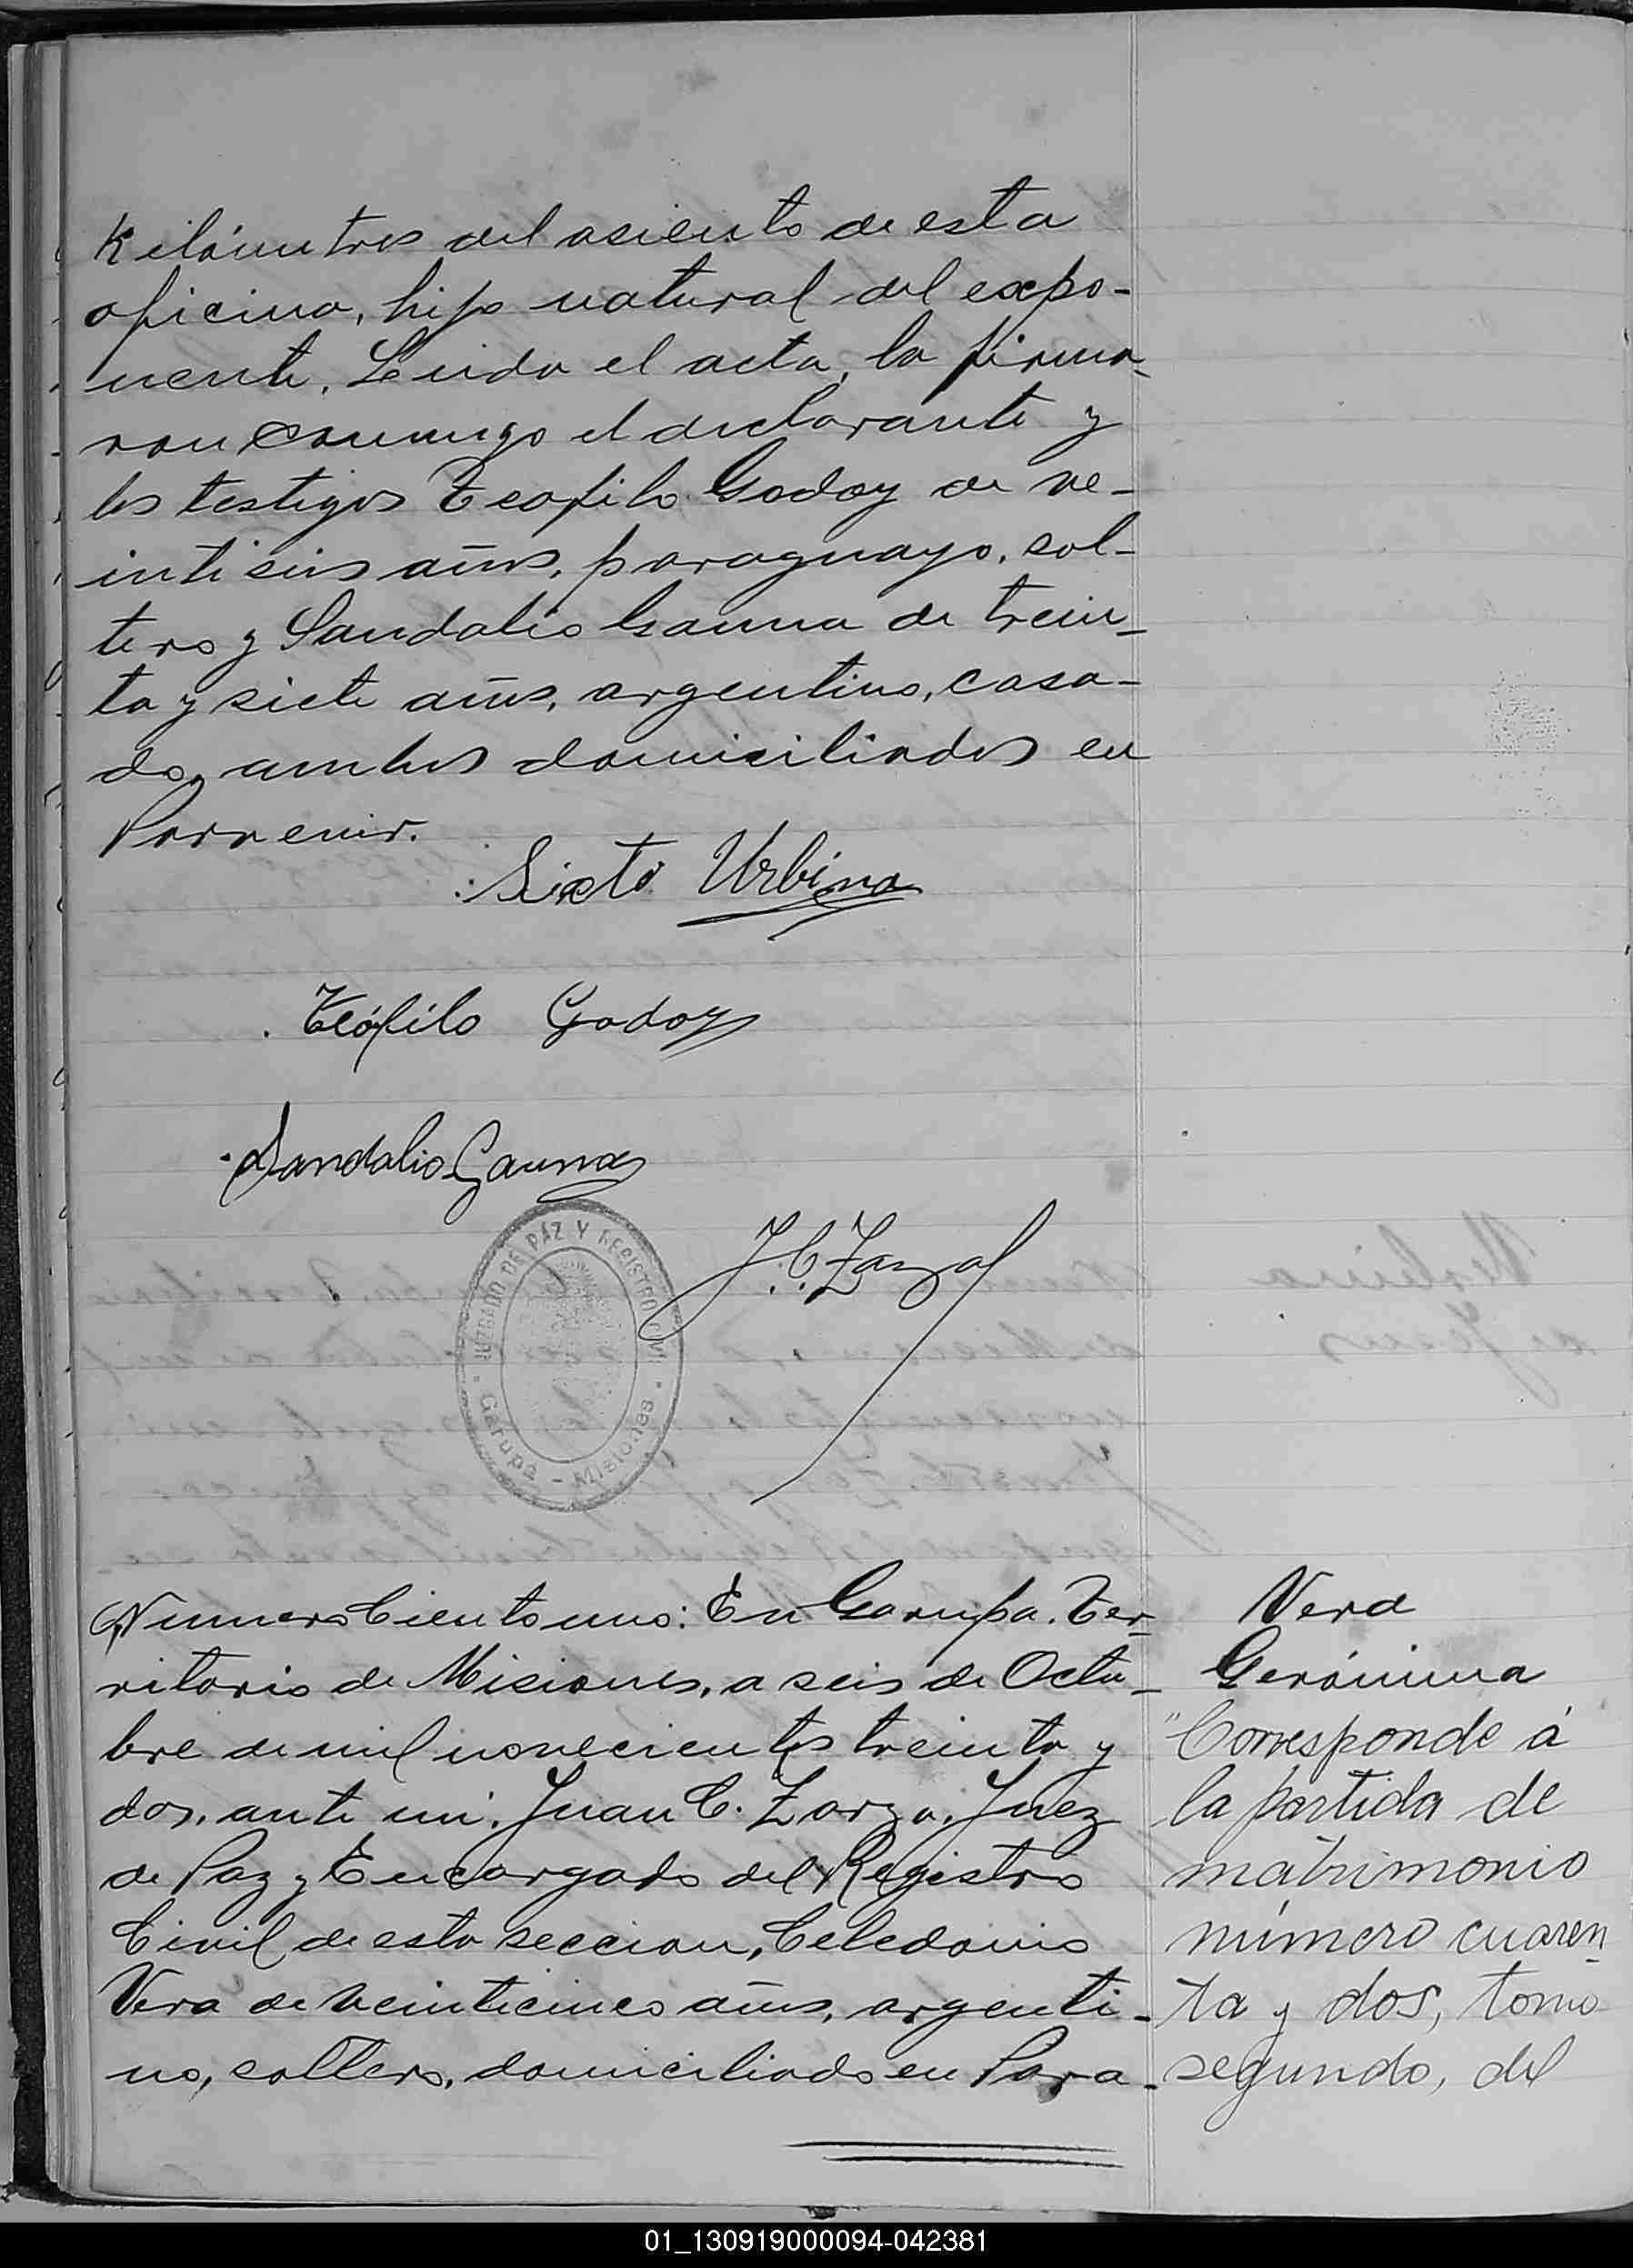 Kilómetros del asiento de esta
oficina, hijo natural del expo-
nente. Leida el acta, la firma-
ron conmigo el declarante y
los testigos Teofilo Godoy de ve-
intiseis años, paraguayo, sol-
tero y Sandalio Gauna de trein-
ta y siete años, argentino, casa-
do, ambos domiciliados en
Porvenir.
Sixto Urbina
Teófilo Godoy
Sandalio Gauna
J. C. Zarza
JUZGADO DE PAZ Y REGISTRO CIVIL
Garupá - Misiones
Numero Ciento uno: En Garupa. Ter-
ritorio de Misiones, a seis de Octu-
bre de mil novecientos treinta y
dos, ante mi, Juan C. Zarza, Juez
de Paz y Encargado del Registro
Civil de esta seccion, Celedonio
Vera de veinticinco años, argenti-
no, soltero, domiciliado en Para-
Vera
Gerónima
"Corresponde á
la partida de
matrimonio
número cuaren-
ta y dos, tomo
segundo, del
01_130919000094-042381